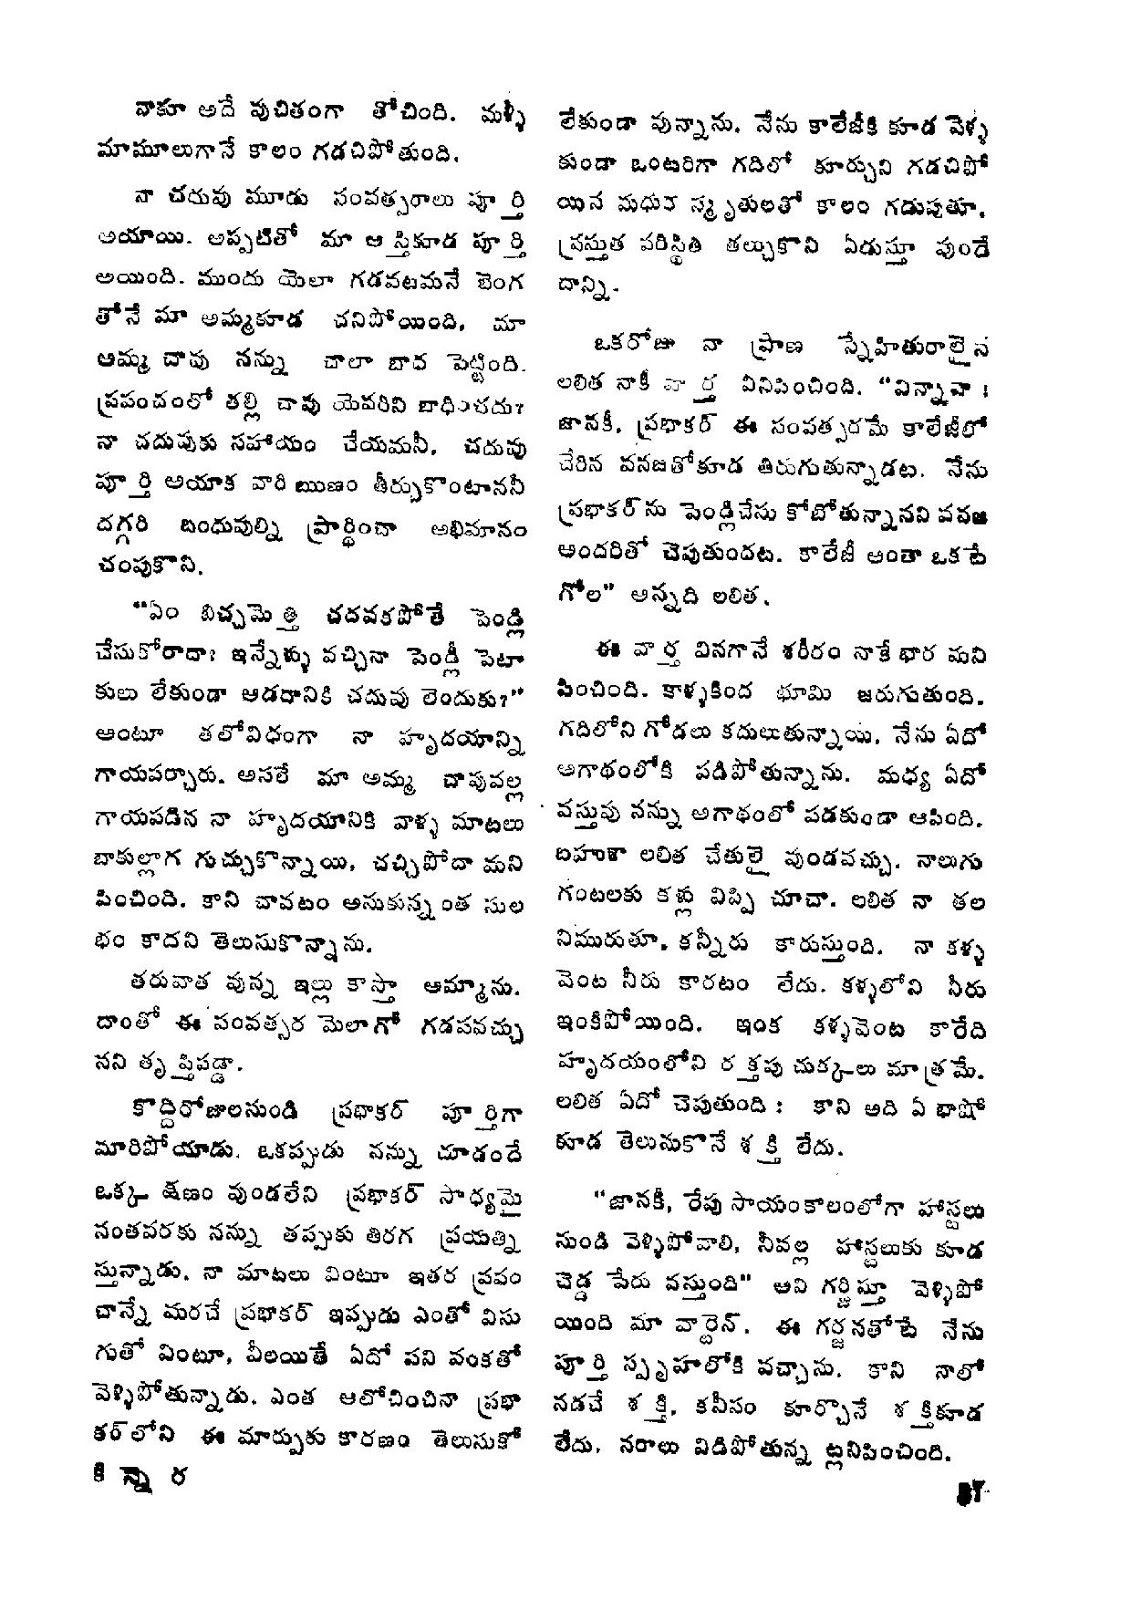 నాకూ అదే వుచితంగా తోచింది. మళ్ళీ
మామూలుగానే కాలం గడచిపోతుంది.
నా చదువు మూడు సంవత్సరాలు పూర్తి
అయాయి. అప్పటితో మా ఆస్తికూడ పూర్తి
అయింది. ముందు యెలా గడవటమనే బెంగ
తోనే మా అమ్మకూడ చనిపోయింది. మా
అమ్మ చావు నన్ను చాలా బాధ పెట్టింది.
ప్రపంచంలో తల్లి చావు యెవరిని బాధించదు?
నా చదువుకు సహాయం చేయమనీ, చదువు
పూర్తి అయాక వారి ఋణం తీర్చుకొంటాననీ
దగ్గరి బంధువుల్ని ప్రార్థించా అభిమానం
చంపుకొని.
"ఏం బిచ్చమెత్తి చదవకపోతే పెండ్లి
చేసుకోరాదా? ఇన్నేళ్ళు వచ్చినా పెండ్లీ పెటా
కులు లేకుండా ఆడదానికి చదువు లెందుకు?"
అంటూ తలోవిధంగా నా హృదయాన్ని
గాయపర్చారు. అసలే మా అమ్మ చావువల్ల
గాయపడిన నా హృదయానికి వాళ్ళ మాటలు
బాకుల్లాగ గుచ్చుకొన్నాయి, చచ్చిపోదా మని
పించింది. కాని చావటం అనుకున్నంత సుల
భం కాదని తెలుసుకొన్నాను.
తరువాత వున్న ఇల్లు కాస్తా అమ్మాను.
దాంతో ఈ సంవత్సర మెలాగో గడపవచ్చు
నని తృప్తిపడ్డా.
కొద్దిరోజులనుండి ప్రభాకర్ పూర్తిగా
మారిపోయాడు. ఒకప్పుడు నన్ను చూడందే
ఒక్క క్షణం వుండలేని ప్రభాకర్ సాధ్యమై
నంతవరకు నన్ను తప్పుకు తిరగ ప్రయత్ని
స్తున్నాడు. నా మాటలు వింటూ ఇతర ప్రపం
చాన్నే మరచే ప్రభాకర్ ఇప్పుడు ఎంతో విసు
గుతో వింటూ, వీలయితే ఏదో పని వంకతో
వెళ్ళిపోతున్నాడు. ఎంత ఆలోచించినా ప్రభా
కర్‌లోని ఈ మార్పుకు కారణం తెలుసుకో
లేకుండా వున్నాను. నేను కాలేజీకి కూడ వెళ్ళ
కుండా ఒంటరిగా గదిలో కూర్చుని గడచిపో
యిన మధుర స్మృతులతో కాలం గడుపుతూ,
ప్రస్తుత పరిస్థితి తల్చుకొని ఏడుస్తూ వుండే
దాన్ని.
ఒకరోజు నా ప్రాణ స్నేహితురాలైన
లలిత నాకీ వార్త వినిపించింది. "విన్నావా!
జానకీ, ప్రభాకర్ ఈ సంవత్సరమే కాలేజీలో
చేరిన వనజతోకూడ తిరుగుతున్నాడట. నేను
ప్రభాకర్‌ను పెండ్లిచేసు కోబోతున్నానని వనజ
అందరితో చెపుతుందట. కాలేజీ అంతా ఒకటే
గోల" అన్నది లలిత.
ఈ వార్త వినగానే శరీరం నాకే భార మని
పించింది. కాళ్ళకింద భూమి జరుగుతుంది.
గదిలోని గోడలు కదులుతున్నాయి. నేను ఏదో
అగాథంలోకి పడిపోతున్నాను. మధ్య ఏదో
వస్తువు నన్ను అగాథంలో పడకుండా ఆపింది.
బహుశా లలిత చేతులై వుండవచ్చు. నాలుగు
గంటలకు కళ్లు విప్పి చూచా. లలిత నా తల
నిమురుతూ, కన్నీరు కారుస్తుంది. నా కళ్ళ
వెంట నీరు కారటం లేదు. కళ్ళలోని నీరు
ఇంకిపోయింది. ఇంక కళ్ళవెంట కారేది
హృదయంలోని రక్తపు చుక్కలు మాత్రమే.
లలిత ఏదో చెపుతుంది: కాని అది ఏ భాషో
కూడ తెలుసుకొనే శక్తి లేదు.
"జానకీ, రేపు సాయంకాలంలోగా హాస్టలు
నుండి వెళ్ళిపోవాలి, నీవల్ల హాస్టలుకు కూడ
చెడ్డ పేరు వస్తుంది" అని గర్జిస్తూ వెళ్ళిపో
యింది మా వార్డెన్. ఈ గర్జనతోటే నేను
పూర్తి స్పృహలోకి వచ్చాను. కాని నాలో
నడచే శక్తి, కనీసం కూర్చొనే శక్తికూడ
లేదు. నరాలు విడిపోతున్న ట్లనిపించింది.
కిన్నార